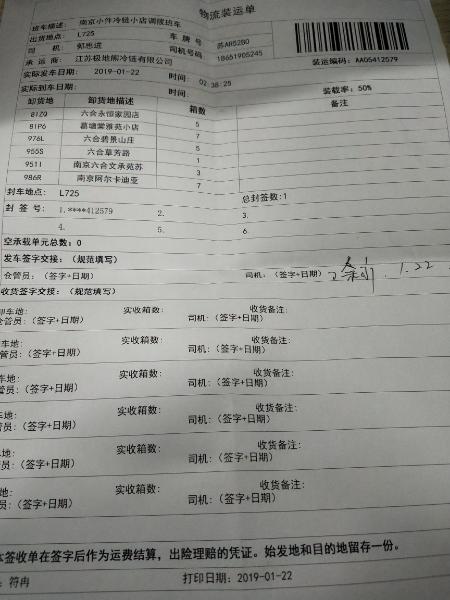 物流装运单
班车描述: 南京小件冷链小店调拨班车
出货地点: L725 车 牌 号 苏AR52B0
司 机: 郭忠进 司机号码 18651905245
承 运 商: 江苏极地熊冷链有限公司 装运编码: AA05412579
实际发车日期: 2019-01-22 时间: 02:38:25
实际到车日期: 时间: 装载率: 50%
卸货地 卸货地描述 箱数 备注
81ZQ 六合永恒家园店 5
81P6 葛塘棠雅苑小店 7
976L 六合碧景山庄 5
955S 六合草芳路 1
951I 南京六合文承苑苏 3
986R 南京阿尔卡迪亚 7
封车地点: L725 总封签数:1
封 签 号: 1.****412579 2. 3.
4. 5. 6.
空承载单元总数: 0
发车签字交接: (规范填写)
仓管员: (签字+日期) 司机: (签字+日期) 1.22
收货签字交接: (规范填写)
卸车地: 实收箱数: 收货备注:
仓管员: (签字+日期) 司机: (签字+日期)
车地: 实收箱数: 收货备注:
管员: (签字+日期) 司机: (签字+日期)
车地: 实收箱数: 收货备注:
管员: (签字+日期) 司机: (签字+日期)
车地: 实收箱数: 收货备注:
管员: (签字+日期) 司机: (签字+日期)
车地: 实收箱数: 收货备注:
员: (签字+日期) 司机: (签字+日期)
地: 实收箱数: 收货备注:
员: (签字+日期) 司机: (签字+日期)
本签收单在签字后作为运费结算，出险理赔的凭证。始发地和目的地留存一份。
: 符冉 打印日期: 2019-01-22